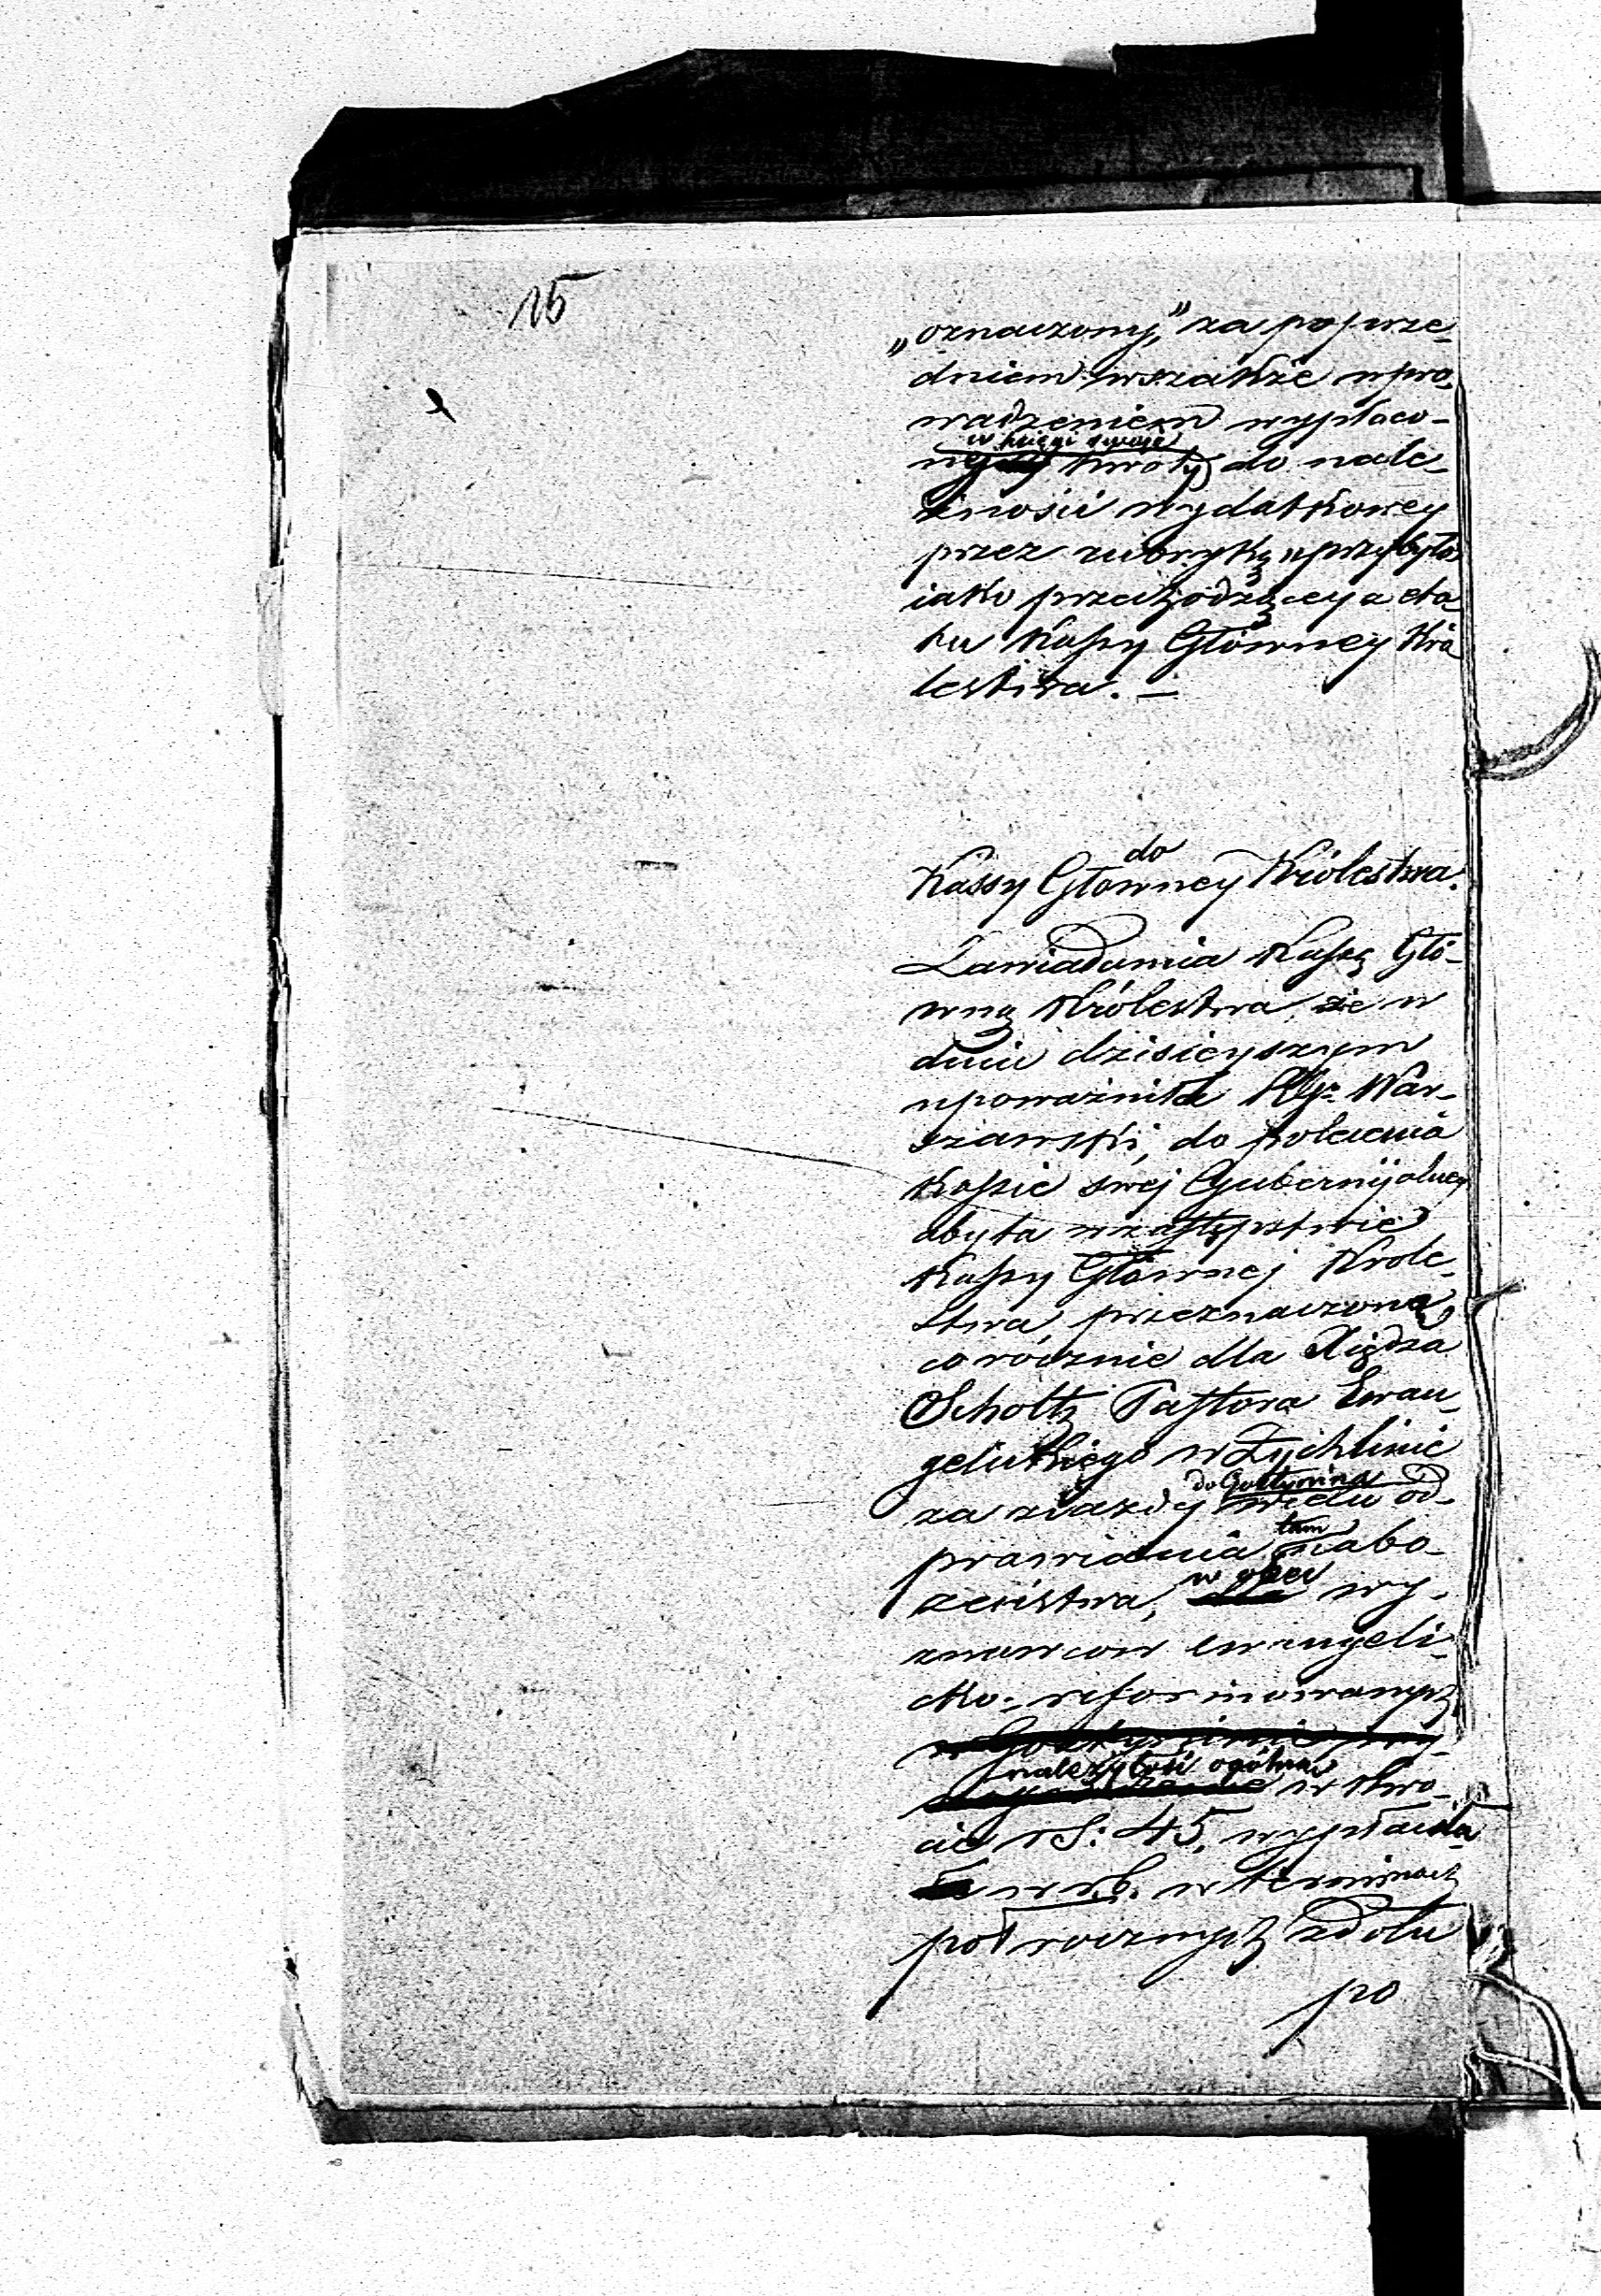 15
„oznaczony,” za poprze-
dniem wszakże wpro-
wadzeniem wypłaco-
w księgi swoje
nej kwoty do nale-
żności wydatkowey
przez rubrykę „przybyło”
iako przechodzącey a eta-
tu Kassy Głównéy Kró
lestwa. —
do
Kassy Głowney Królestwa.
Zawiadamia Kassę Głó-
wną Królestwa, że w
dniu dzisieyszym
upoważniła Rząd War-
szawski, do polecenia
Kassie swej Gubernijalney
aby ta w zastępstwie
Kassy Głównej Króle-
stwa przeznaczoną
corocznie dla Xiędza
Scholtz Pastora Ewan-
gelickiego w Żychlinie
do Gostynina
za zjazdy w celu od-
tam
prawiania nabo-
w obec
żeństwa, dla wy-
znawcow ewangeli-
cko-reformowanych
w Gostyninie
należytość ogólną
w kwo-
cie rS: 45, wypłaciła
w r.b. w terminach
pół rocznych zdołu
po